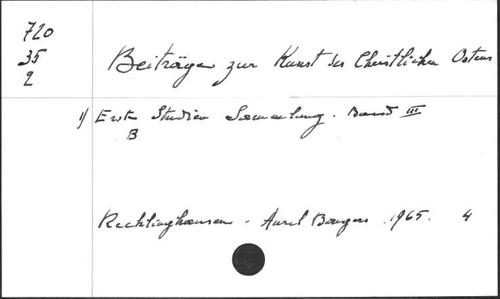 720
35
2
Beiträge zur Kunst des Christlichen Ostens
1) Erste Studien Sammlung. Band III
B
Recklinghausen - Aurel Bongers. 1965. 4